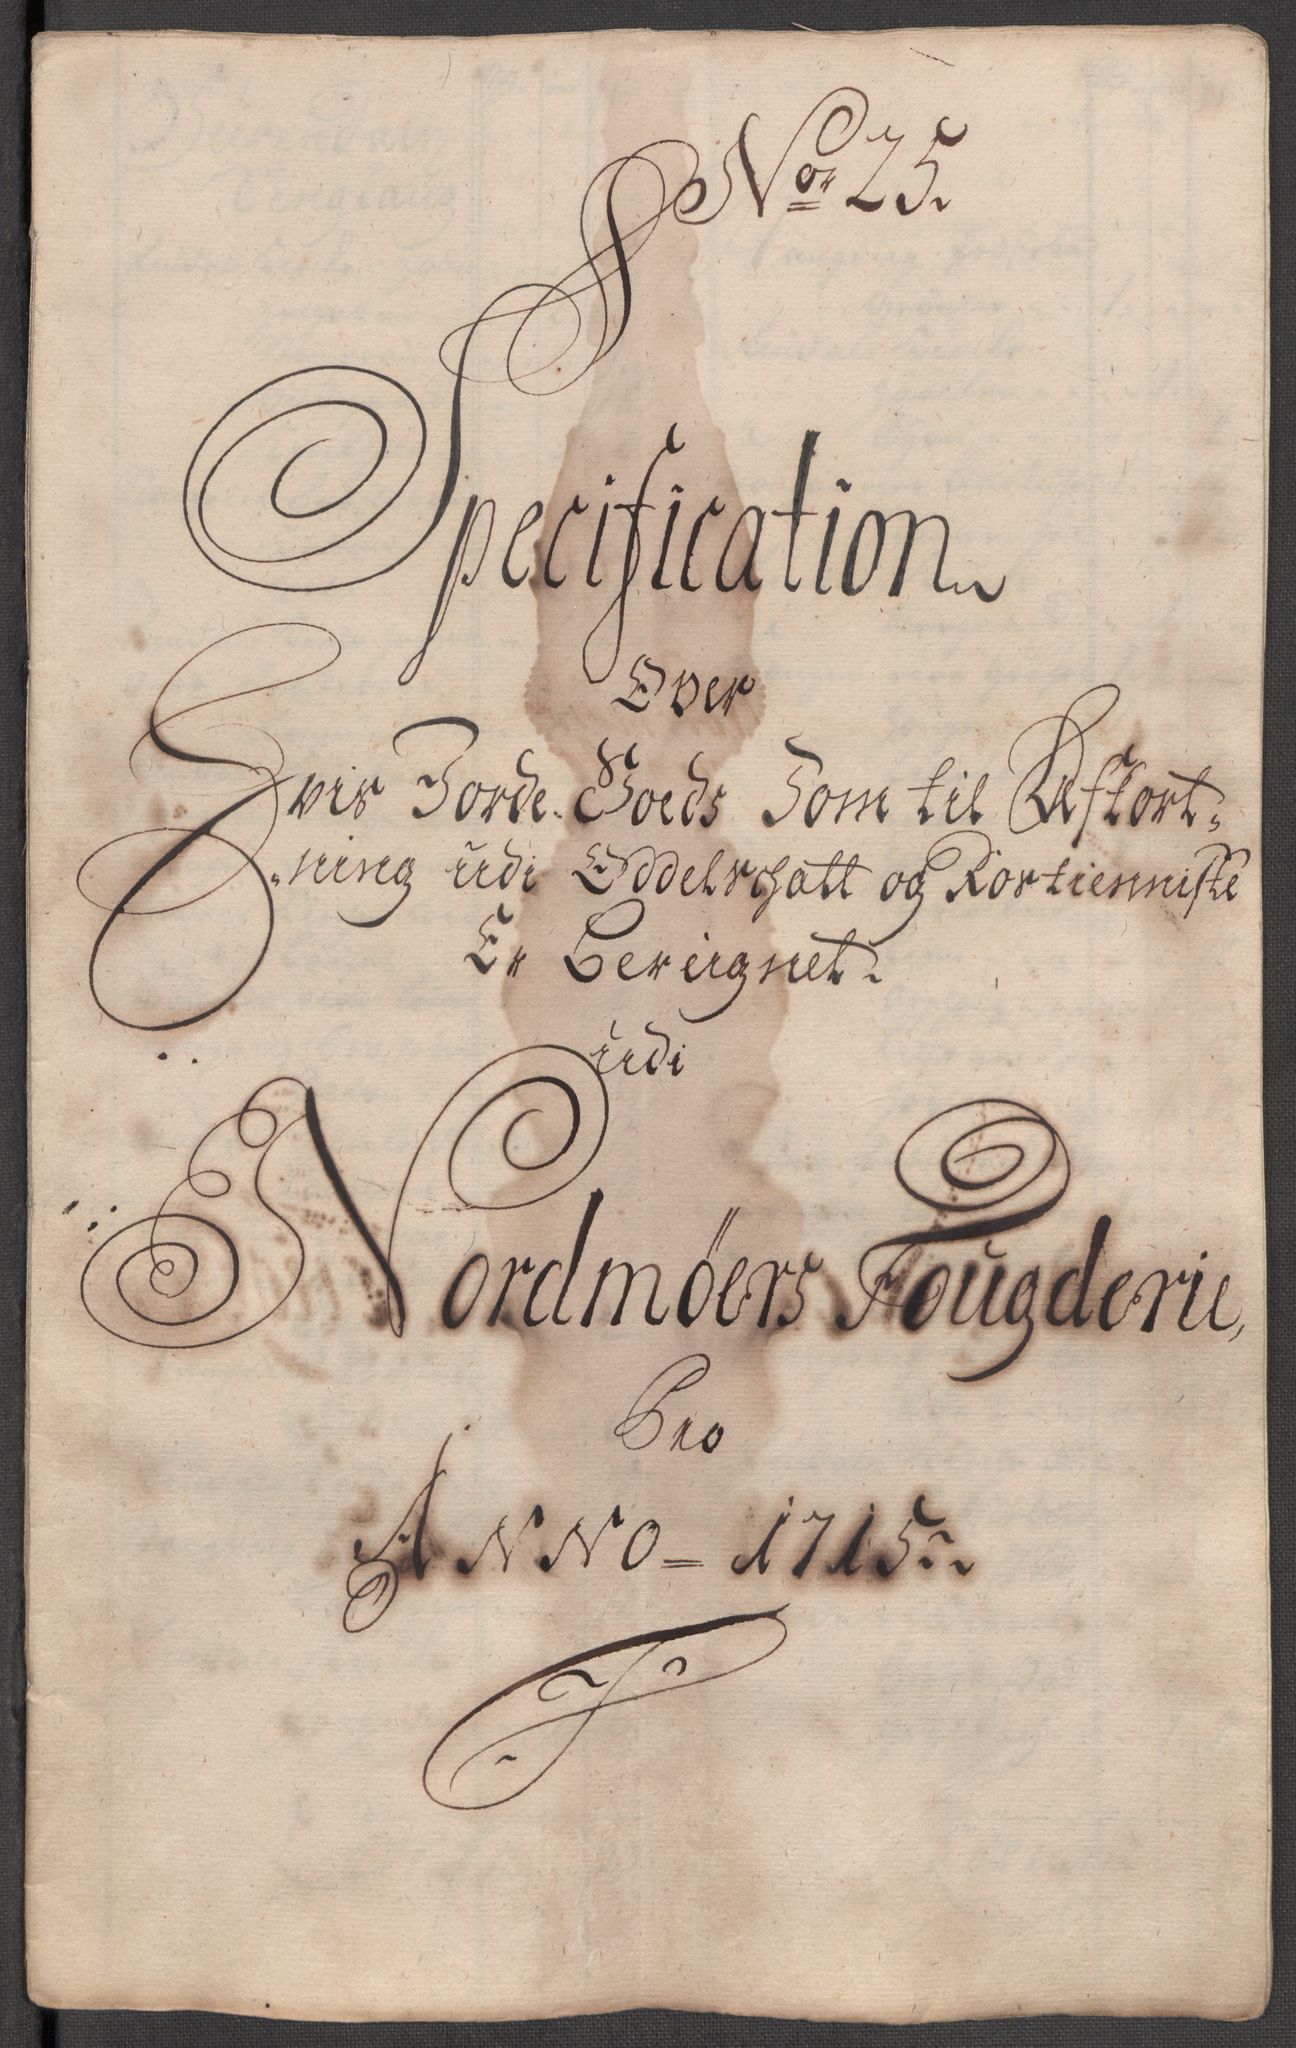 No 25.
Specification
Over
Hvis Jorde-Goeds Som til Afkort-
ning udi Oddelschatt og Rostienniste
Er berignet.
udi
Nordmöers Fougderie,
Pro
ANNO = 1715.